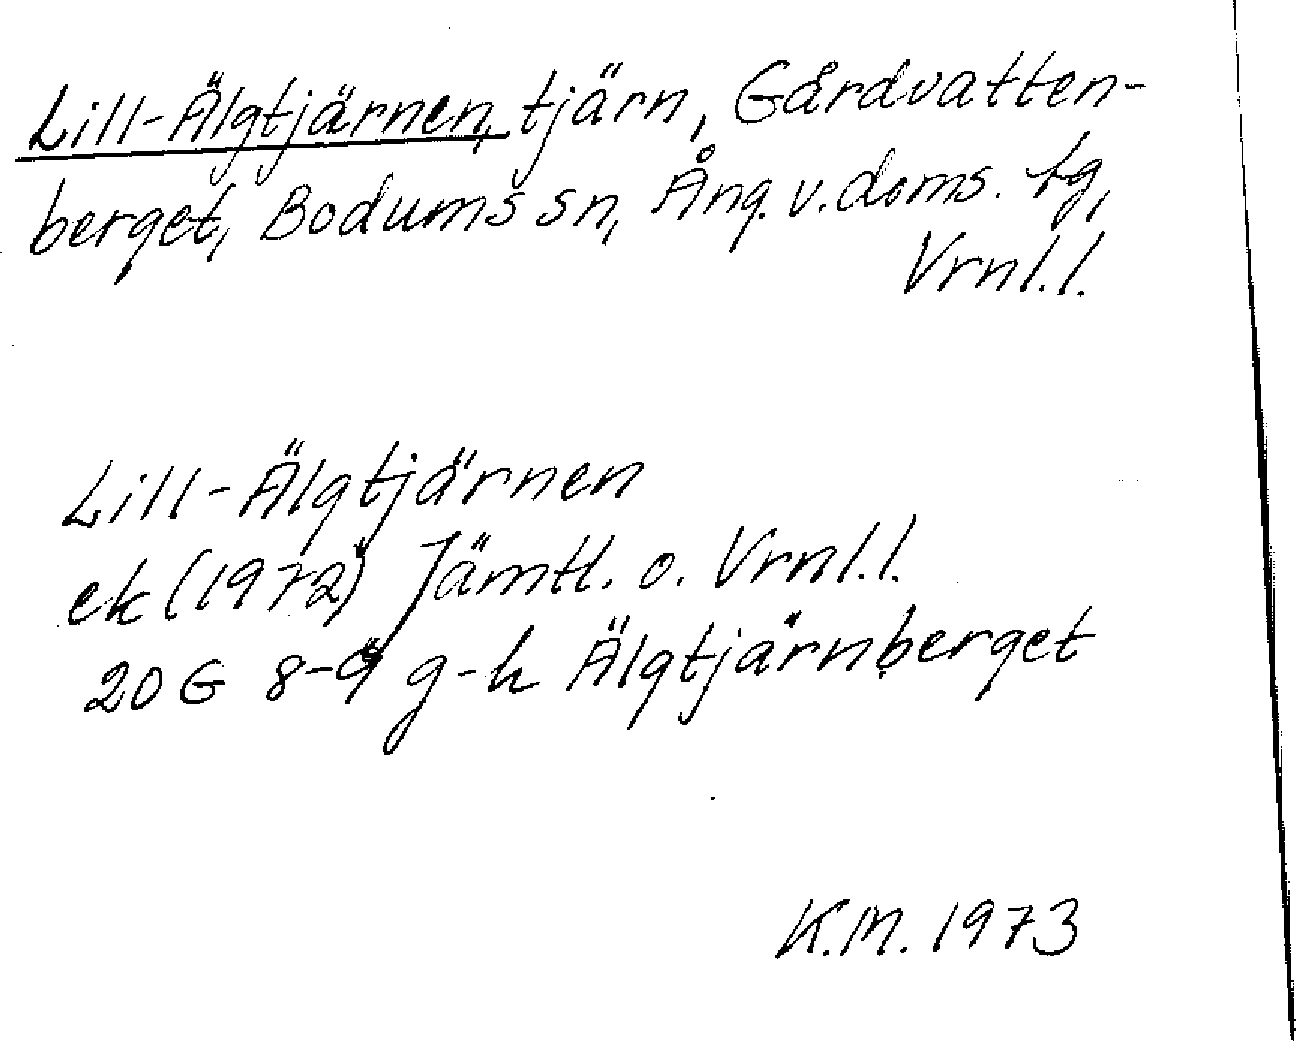 Lill-Älgtjärnen, tjärn, Gårdvatten-
berget, Bodums sn, Ång. v. doms. tg,
Vrnl.l.
Lill-Älgtjärnen
ek (1972) Jämtl. o. Vrnl.l.
20 G 8-9 g-h Älgtjärnberget
K.M. 1973